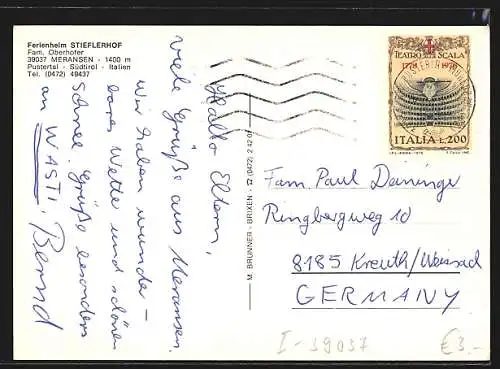 Ferienheim STIEFLERHOF
Fam. Oberhofer
39037 MERANSEN - 1400 m
Pustertal - Südtirol - Italien
Tel. (0472) 49437
Hallo Eltern,
viele Grüße aus Meransen.
Wir haben wunder-
bares Wetter und schönen
Schnee. Grüße besonders
an WASTI, Bernd
M. BRUNNER - BRIXEN - ☎ (0472) 2 42 0
TEATRO ALLA SCALA
1778 1978
ITALIA L.200
I.P.S.-ROMA-1978
Fam. Paul Deininger
Ringbergweg 10
8185 Kreuth/Weissach
GERMANY
I-39037
€ 3.-